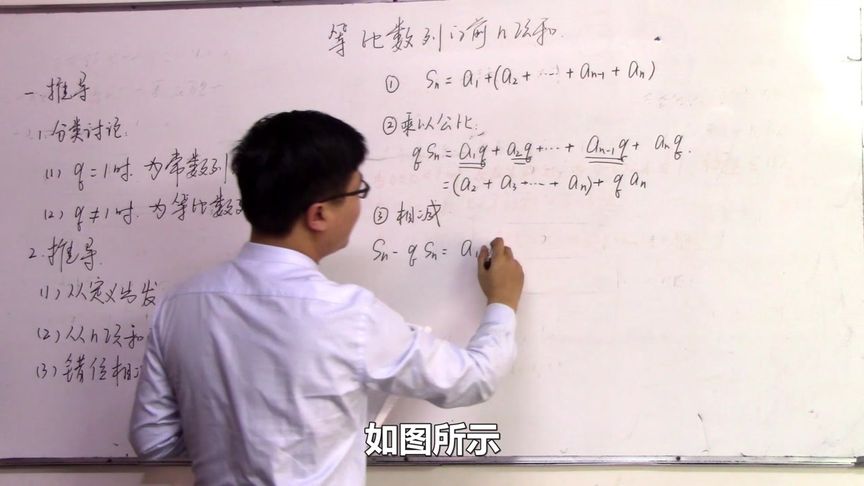 等比数列的前n项和.
一.推导
1.分类讨论:
(1) q=1时.为常数列
(2) q≠1时.为等比数
2.推导.
(1)从定义出发
(2)从n项和
(3)错位相
① Sn = a1+(a2+…+an-1+an)
②乘以公比:
qSn = a1q+a2q+…+an-1q+anq.
=(a2+a3+…+an)+qan
③相减
Sn-qSn= a1
如图所示